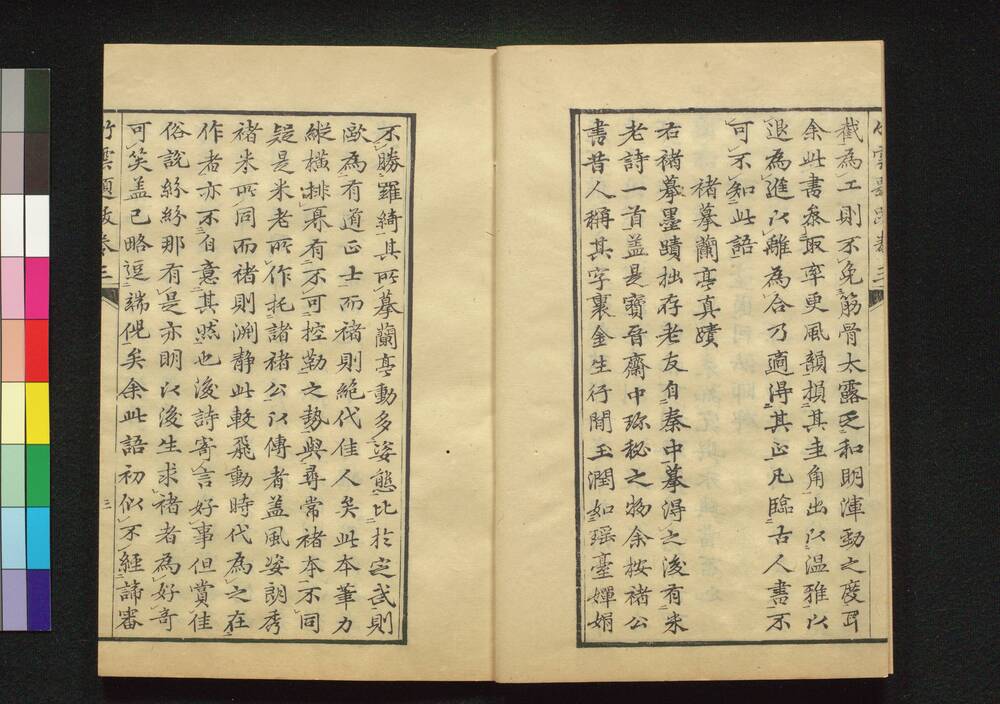 竹雲題跋卷三
截為工則不免筋骨太露乏和明渾勁之度耳
余此書叅取率更風韻損其圭角出以溫雅以
退為進以離為合乃適得其正凡臨古人書不
可不知此語
褚摹蘭亭真蹟
右褚摹墨蹟拙存老友自秦中摹得之後有米
老詩一首蓋是寶晉齋中珍秘之物余按褚公
書昔人稱其字裏金生行間玉潤如瑶臺嬋娟
不勝羅綺其所摹蘭亭動多姿態比於定武則
歐為有道正士而褚則絶代佳人矣此本筆力
縱橫排奡有不可控勒之勢與尋常褚本不同
疑是米老所作托諸褚公以傳者蓋風姿朗秀
褚米所同而褚則淵静此較飛動時代為之在
作者亦不自意其然也後詩寄言好事但賞佳
俗說紛紛那有是亦明以後生求褚者為好奇
可笑盖已略逗端倪矣余此語初似不經諦審
竹雲題跋卷三
三